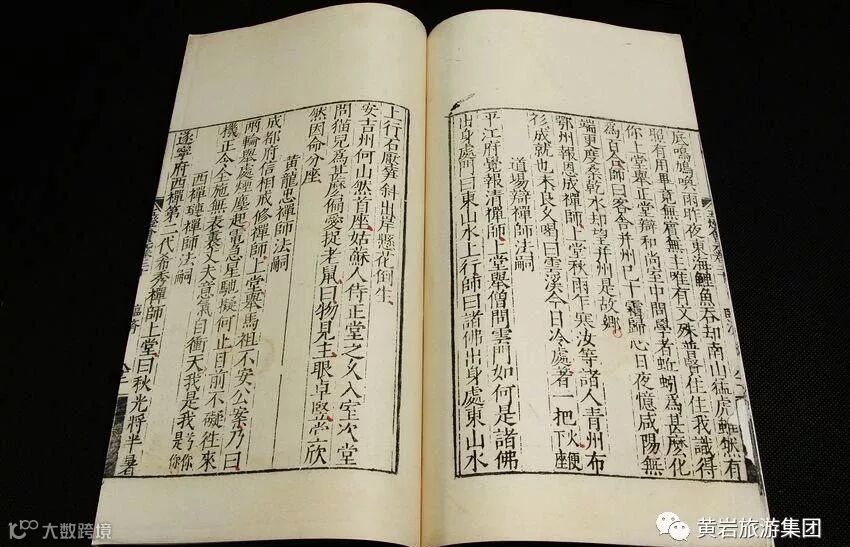 底鳴鳩喚雨昨夜東海鯉魚吞却南山猛虎雖然有
照有用畢竟無賓無主唯有文殊普賢住住我識得
你上堂舉正堂辯和尚室中問學者蚯蚓為甚麼化
為百合師曰客舍并州已十霜歸心日夜憶咸陽無
端更度桑乾水却望并州是故鄉
鄂州報恩成禪師上堂秋雨乍寒汝等諸人青州布
衫成就也未良久喝曰雲溪今日冷處著一把火便
下座
道場辯禪師法嗣
平江府覺報清禪師上堂舉僧問雲門如何是諸佛
出身處門曰東山水上行師曰諸佛出身處東山水
上行石壓筍斜出岸懸花倒生
安吉州何山然首座姑蘇人侍正堂之久入室次堂
問猫兒為甚麼偏愛捉老鼠曰物見主眼卓豎堂欣
然因命分座
黃龍忠禪師法嗣
成都府信相戒修禪師上堂舉馬祖不安公案乃曰
兩輪舉處煙塵起電急星馳擬何止目前不礙往來
機正令全施無表裏丈夫意氣自衝天我是我兮你
是你
西禪璉禪師法嗣
遂寧府西禪第二代希秀禪師上堂曰秋光將半暑
大数跨境
黄岩旅游集团